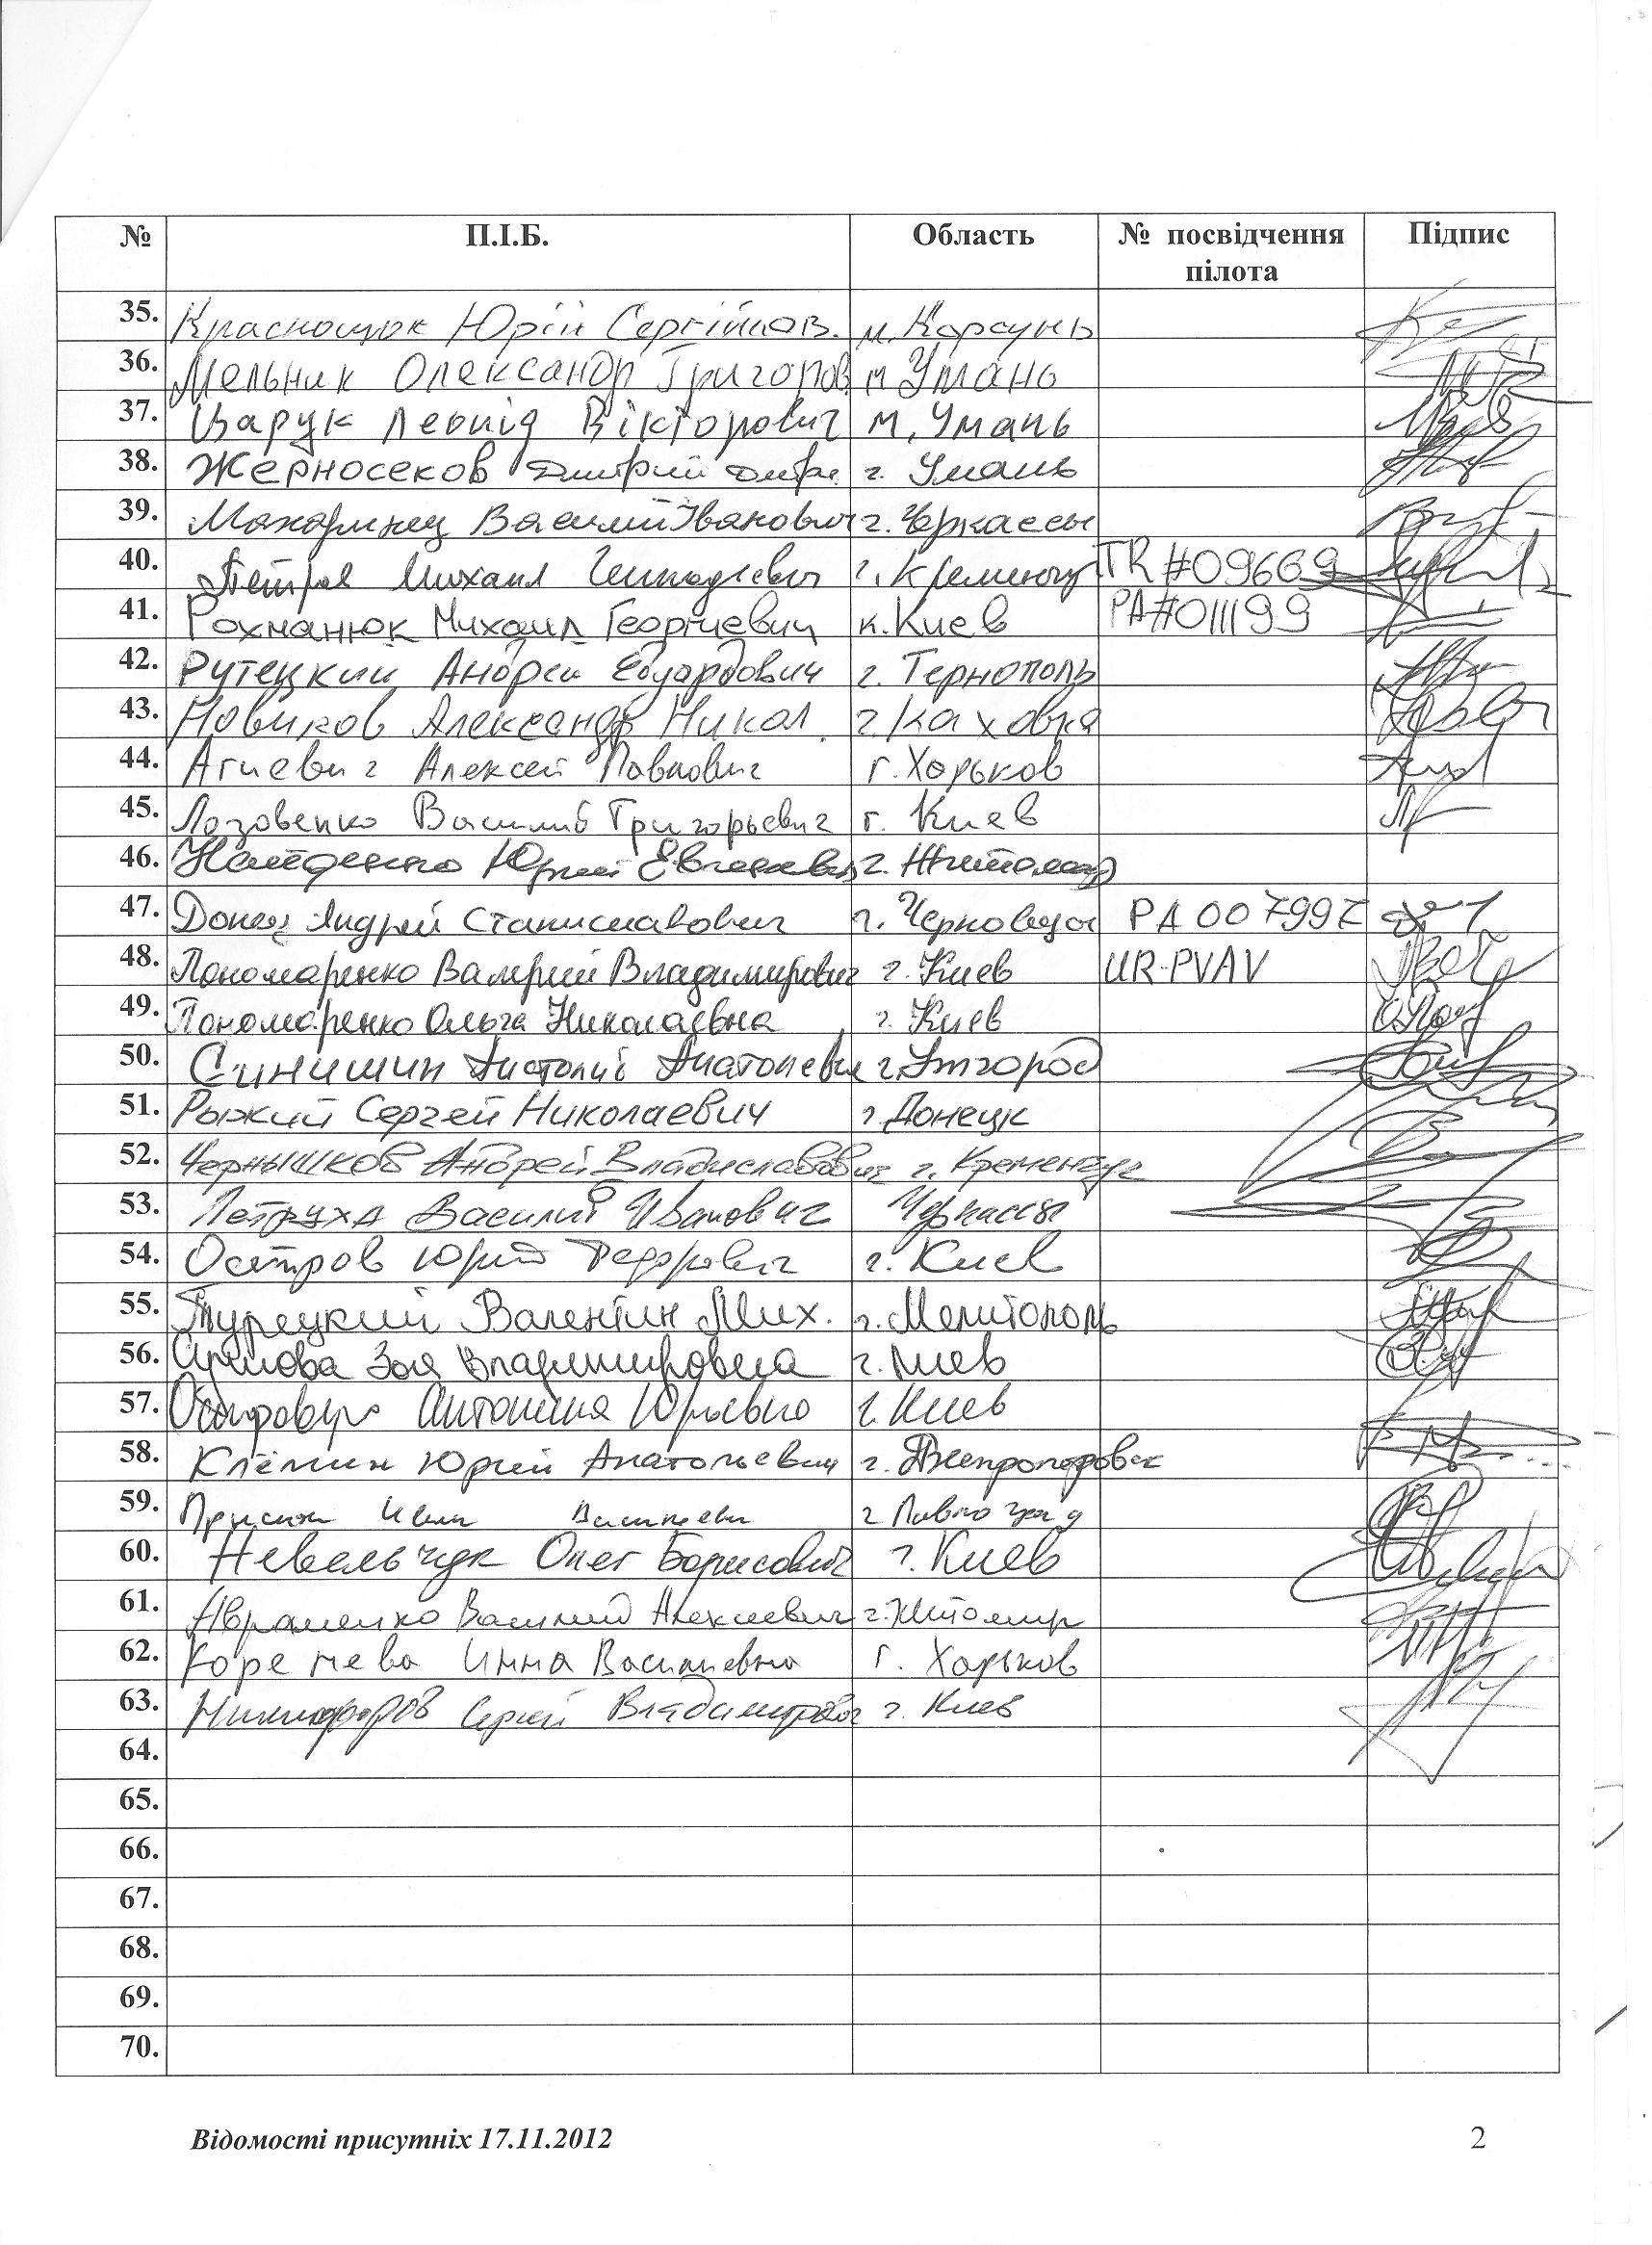 № П.І.Б. Область № посвідчення пілота Підпис
35. Юрій м. Корсунь
36. Мельник Олександр Григоров. м Умань
37. Царук Леонід Вікторович м. Умань
38. Жерносеков Дмитрий г. Умань
39. Василий Іванович г. Черкассы
40. Михаил г. Кременчуг TR #09669
41. Рохманюк Михаил Георгиевич Киев PA#011199
42. Рутецкий Андрей Едуардович г. Тернополь
43. Новиков Александр Никол. г Каховка
44. Агиевич Алексей Павлович г. Харьков
45. Лозовенко Василий Григорьевич г. Киев
46. Юрий г. Житомир
47. Андрей Станиславович г. Черновцы PA 007997
48. Пономаренко Валерий Владимирович г. Киев UR-PVAV
49. Пономаренко Ольга Николаевна г. Киев
50. Синишин Анатолий Анатолиевич г. Ужгород
51. Рыжий Сергей Николаевич г Донецк
52. Чернышков Андрей Владиславович г. Кременчуг
53. Петруха Василий Иванович Черкассы
54. Остров Юрий Федорович г. Киев
55. Турецкий Валентин Мих. г. Мелитополь
56. Зоя Владимировна г. Киев
57. Антонина Юрьевна г. Киев
58. Клёмин Юрий Анатольевич г. Днепропетровск
59. г Павлоград
60. Невельчук Олег Борисович г. Киев
61. Авраменко Василий Алексеевич г. Житомир
62. Инна Васильевна г. Харьков
63. Никифоров Сергей Владимирович г. Киев
64.
65.
66.
67.
68.
69.
70.
Відомості присутніх 17.11.2012 2